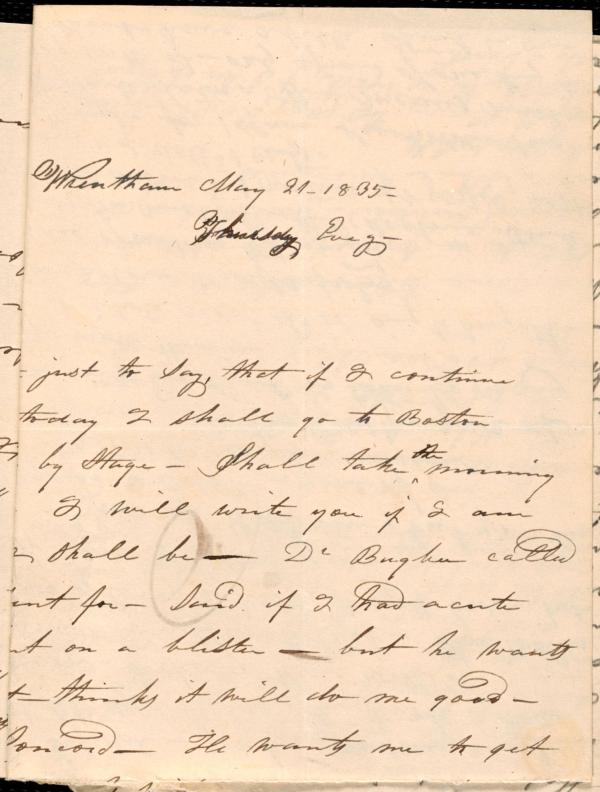 Wrentham May 21 - 1835 -
Thursdy Eveg -
just to say, that if I continue
today I shall go to Boston
by Stage - Shall take the morning
I will write you if I am
shall be - Dr Bugbee called
for - Said if I had acute
on a blister - but he wants
thinks it will do me good -
Concord - He wants me to get